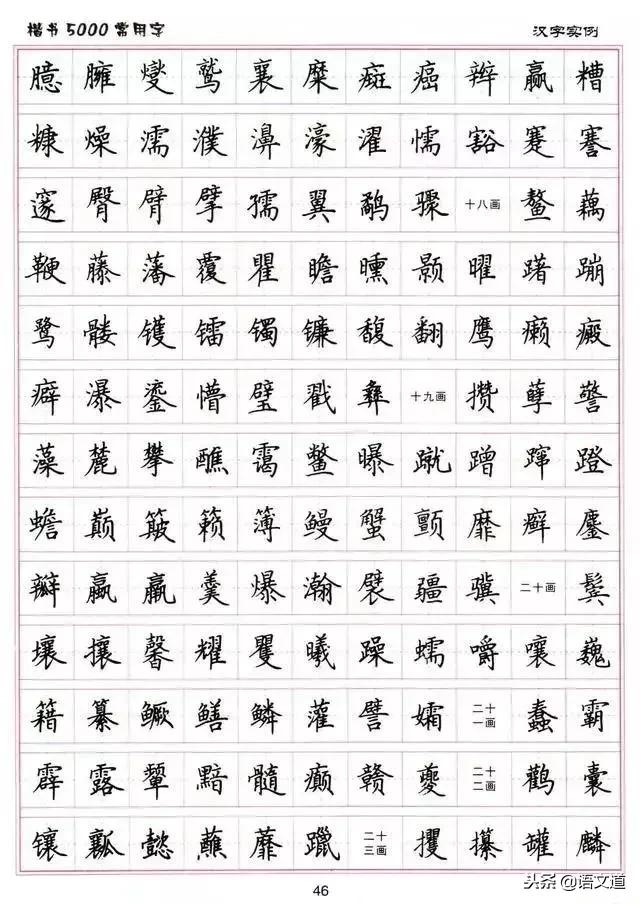 楷书5000常用字 汉字实例
臆 臃 燮 鹫 襄 糜 癍 癌 辫 赢 糟
糠 燥 濡 濮 濞 濠 濯 懦 豁 蹇 謇
邃 臀 臂 擘 孺 翼 鹬 骤 十八画 鳌 藕
鞭 藤 藩 覆 瞿 瞻 曛 颢 曜 躇 蹦
鹭 髅 镬 镭 镯 镰 馥 翻 鹰 癞 癜
癖 瀑 鎏 懵 璧 戳 彝 十九画 攒 孽 警
藻 麓 攀 醮 霭 鳖 曝 蹴 蹭 蹿 蹬
蟾 巅 簸 籁 簿 鳗 蟹 颤 靡 癣 鏖
瓣 嬴 羸 羹 爆 瀚 襞 疆 骥 二十画 鬓
壤 攘 馨 耀 矍 曦 躁 蠕 嚼 嚷 巍
籍 纂 鳜 鳝 鳞 灌 譬 孀 二十一画 蠢 霸
霹 露 颦 黯 髓 癫 赣 夔 二十二画 鹳 囊
镶 瓤 懿 蘸 蘼 躐 二十三画 攫 攥 罐 麟
46
头条@语文道